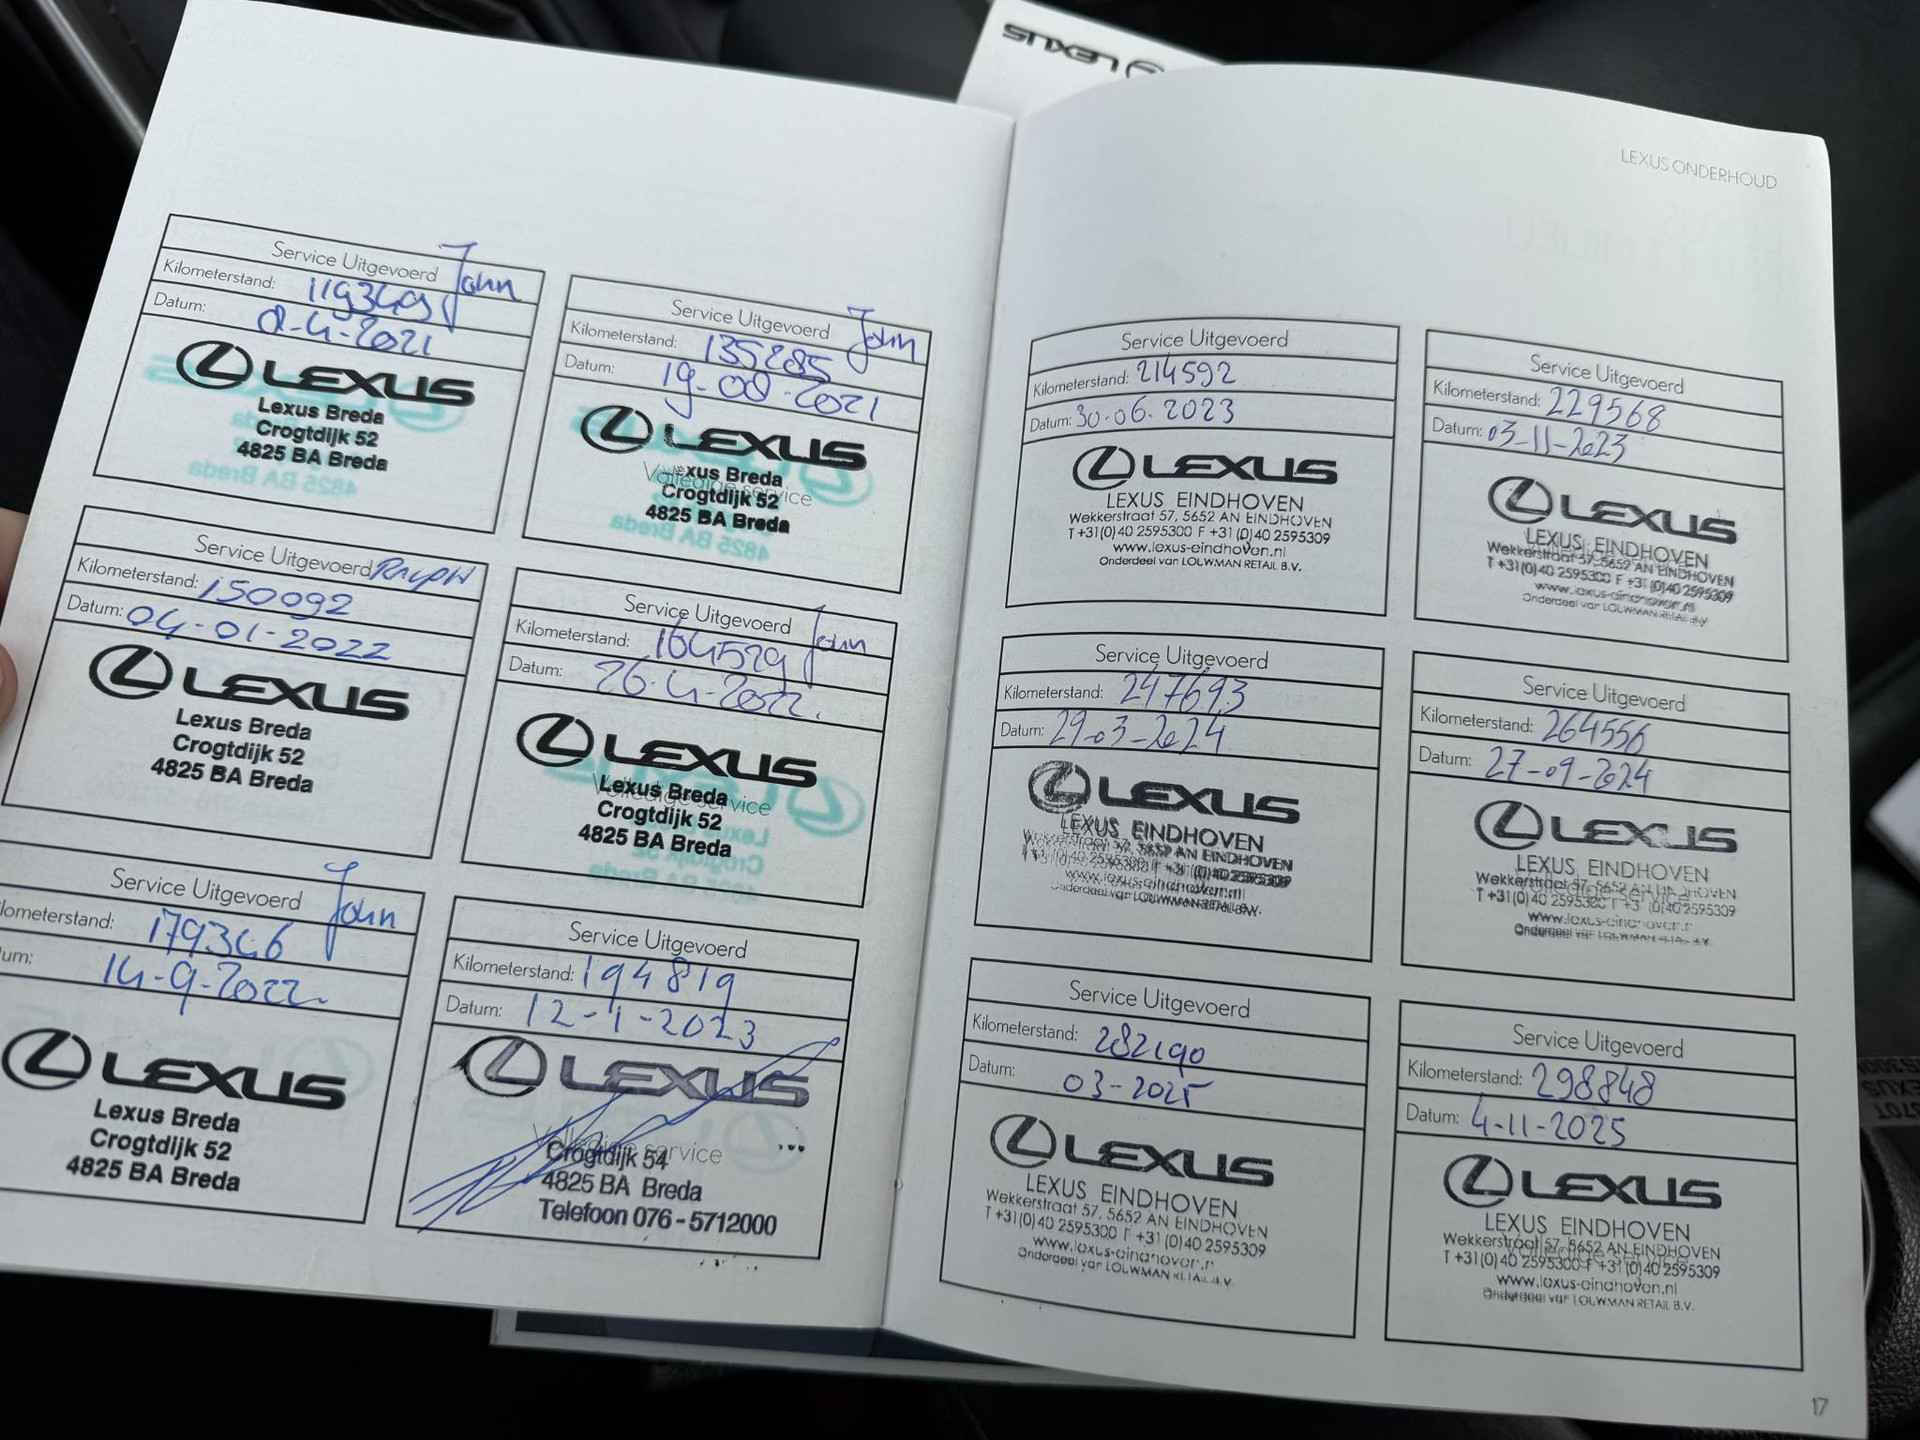 LEXUS
LEXUS ONDERHOUD
Service Uitgevoerd John
Kilometerstand: 119349
Datum: 8-4-2021
LEXUS
Lexus Breda
Crogtdijk 52
4825 BA Breda
Service Uitgevoerd John
Kilometerstand: 135285
Datum: 19-08-2021
LEXUS
Volledige service
Lexus Breda
Crogtdijk 52
4825 BA Breda
Service Uitgevoerd Ralph
Kilometerstand: 150092
Datum: 04-01-2022
LEXUS
Lexus Breda
Crogtdijk 52
4825 BA Breda
Service Uitgevoerd John
Kilometerstand: 164529
Datum: 26-4-2022.
LEXUS
Volledige service
Lexus Breda
Crogtdijk 52
4825 BA Breda
Service Uitgevoerd John
lometerstand: 179346
um: 14-9-2022.
LEXUS
Lexus Breda
Crogtdijk 52
4825 BA Breda
Service Uitgevoerd
Kilometerstand: 194819
Datum: 12-1-2023
LEXUS
Volledige service
Crogtdijk 54
4825 BA Breda
Telefoon 076 - 5712000
Service Uitgevoerd
Kilometerstand: 214592
Datum: 30-06-2023
LEXUS
LEXUS EINDHOVEN
Wekkerstraat 57, 5652 AN EINDHOVEN
T +31(0)40 2595300 F +31 (0)40 2595309
www.lexus-eindhoven.nl
Onderdeel van LOUWMAN RETAIL B.V.
Service Uitgevoerd
Kilometerstand: 229568
Datum: 03-11-2023
LEXUS
LEXUS EINDHOVEN
Wekkerstraat 57, 5652 AN EINDHOVEN
T +31(0)40 2595300 F +31 (0)40 2595309
www.lexus-eindhoven.nl
Onderdeel van LOUWMAN RETAIL B.V.
Service Uitgevoerd
Kilometerstand: 247693
Datum: 29-03-2024
LEXUS
LEXUS EINDHOVEN
Wekkerstraat 57, 5652 AN EINDHOVEN
T +31(0)40 2595300 F +31 (0)40 2595309
www.lexus-eindhoven.nl
Onderdeel van LOUWMAN RETAIL B.V.
Service Uitgevoerd
Kilometerstand: 264556
Datum: 27-09-2024
LEXUS
LEXUS EINDHOVEN
Wekkerstraat 57, 5652 AN EINDHOVEN
T +31(0)40 2595300 F +31 (0)40 2595309
www.lexus-eindhoven.nl
Onderdeel van LOUWMAN RETAIL B.V.
Service Uitgevoerd
Kilometerstand: 282190
Datum: 03-2025
LEXUS
LEXUS EINDHOVEN
Wekkerstraat 57, 5652 AN EINDHOVEN
T +31(0)40 2595300 F +31 (0)40 2595309
www.lexus-eindhoven.nl
Onderdeel van LOUWMAN RETAIL B.V.
Service Uitgevoerd
Kilometerstand: 298848
Datum: 4-11-2025
LEXUS
LEXUS EINDHOVEN
Wekkerstraat 57, 5652 AN EINDHOVEN
T +31(0)40 2595300 F +31 (0)40 2595309
www.lexus-eindhoven.nl
Onderdeel van LOUWMAN RETAIL B.V.
17